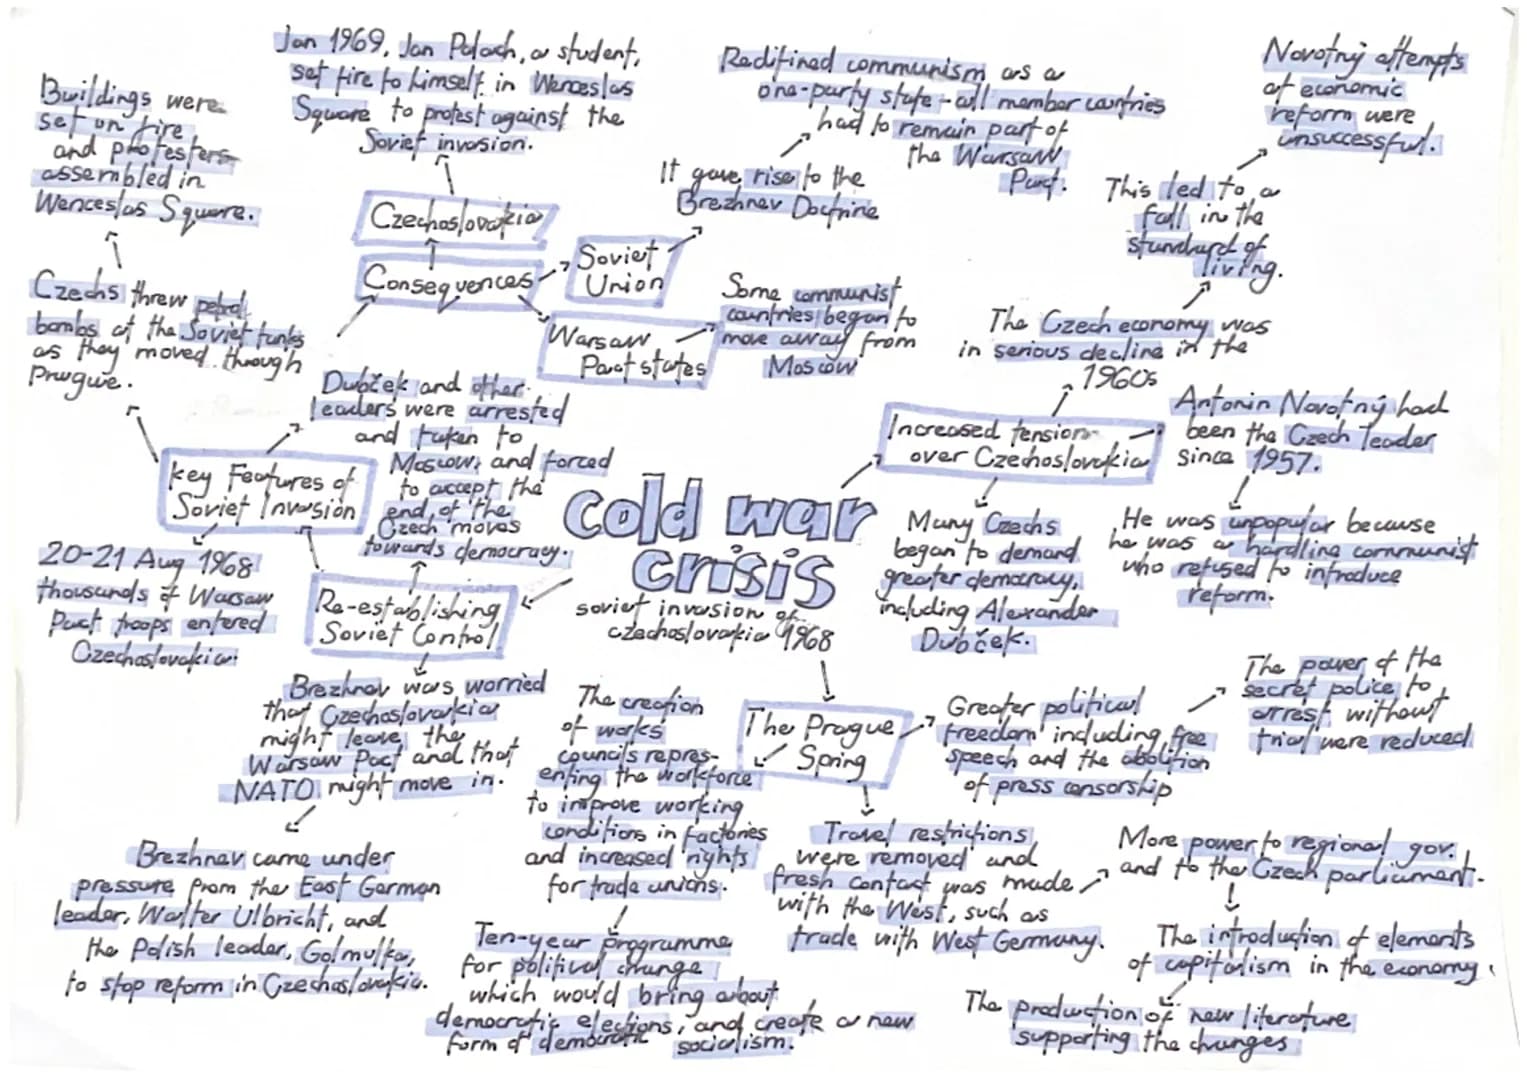 Cold war
crisis
soviet invasion of
czechoslovakia 1968
Increased tension
over Czechoslovakia
The Czech economy was
in serious decline in the
1960s
This led to a
fall in the
standard of
living.
Novotný attempts
at economic
reform were
unsuccessful.
Antonin Novotný had
been the Czech leader
since 1957.
He was unpopular because
he was a hardline communist
who refused to introduce
reform.
Many Czechs
began to demand
greater democracy,
including Alexander
Dubček.
The Prague
Spring
Greater political
freedom including free
speech and the abolition
of press censorship
The power of the
secret police to
arrest without
trial were reduced
Travel restrictions
were removed and
fresh contact was made
with the West, such as
trade with West Germany.
More power to regional gov.
and to the Czech parliament.
The introduction of elements
of capitalism in the economy.
The production of new literature
supporting the changes
The creation
of works
councils repres-
enting the workforce
to improve working
conditions in factories
and increased rights
for trade unions.
Ten-year programme
for political change
which would bring about
democratic elections, and create a new
form of democratic socialism.
Re-establishing
Soviet Control
Dubček and other
leaders were arrested
and taken to
Moscow, and forced
to accept the
end of the
Czech moves
towards democracy.
Brezhnev was worried
that Czechoslovakia
might leave the
Warsaw Pact and that
NATO might move in.
Brezhnev came under
pressure from the East German
leader, Walter Ulbricht, and
the Polish leader, Golmulka,
to stop reform in Czechoslovakia.
Key Features of
Soviet Invasion
20-21 Aug 1968
thousands of Warsaw
Pact troops entered
Czechoslovakia.
Czechs threw petrol
bombs at the Soviet tanks
as they moved through
Prague.
Buildings were
set on fire
and protesters
assembled in
Wenceslas Square.
Consequences
Czechoslovakia
Jan 1969, Jan Palach, a student,
set fire to himself in Wenceslas
Square to protest against the
Soviet invasion.
Soviet
Union
It gave rise to the
Brezhnev Doctrine
Redifined communism as a
one-party state - all member countries
had to remain part of
the Warsaw
Pact.
Warsaw
Pact states
Some communist
countries began to
move away from
Moscow